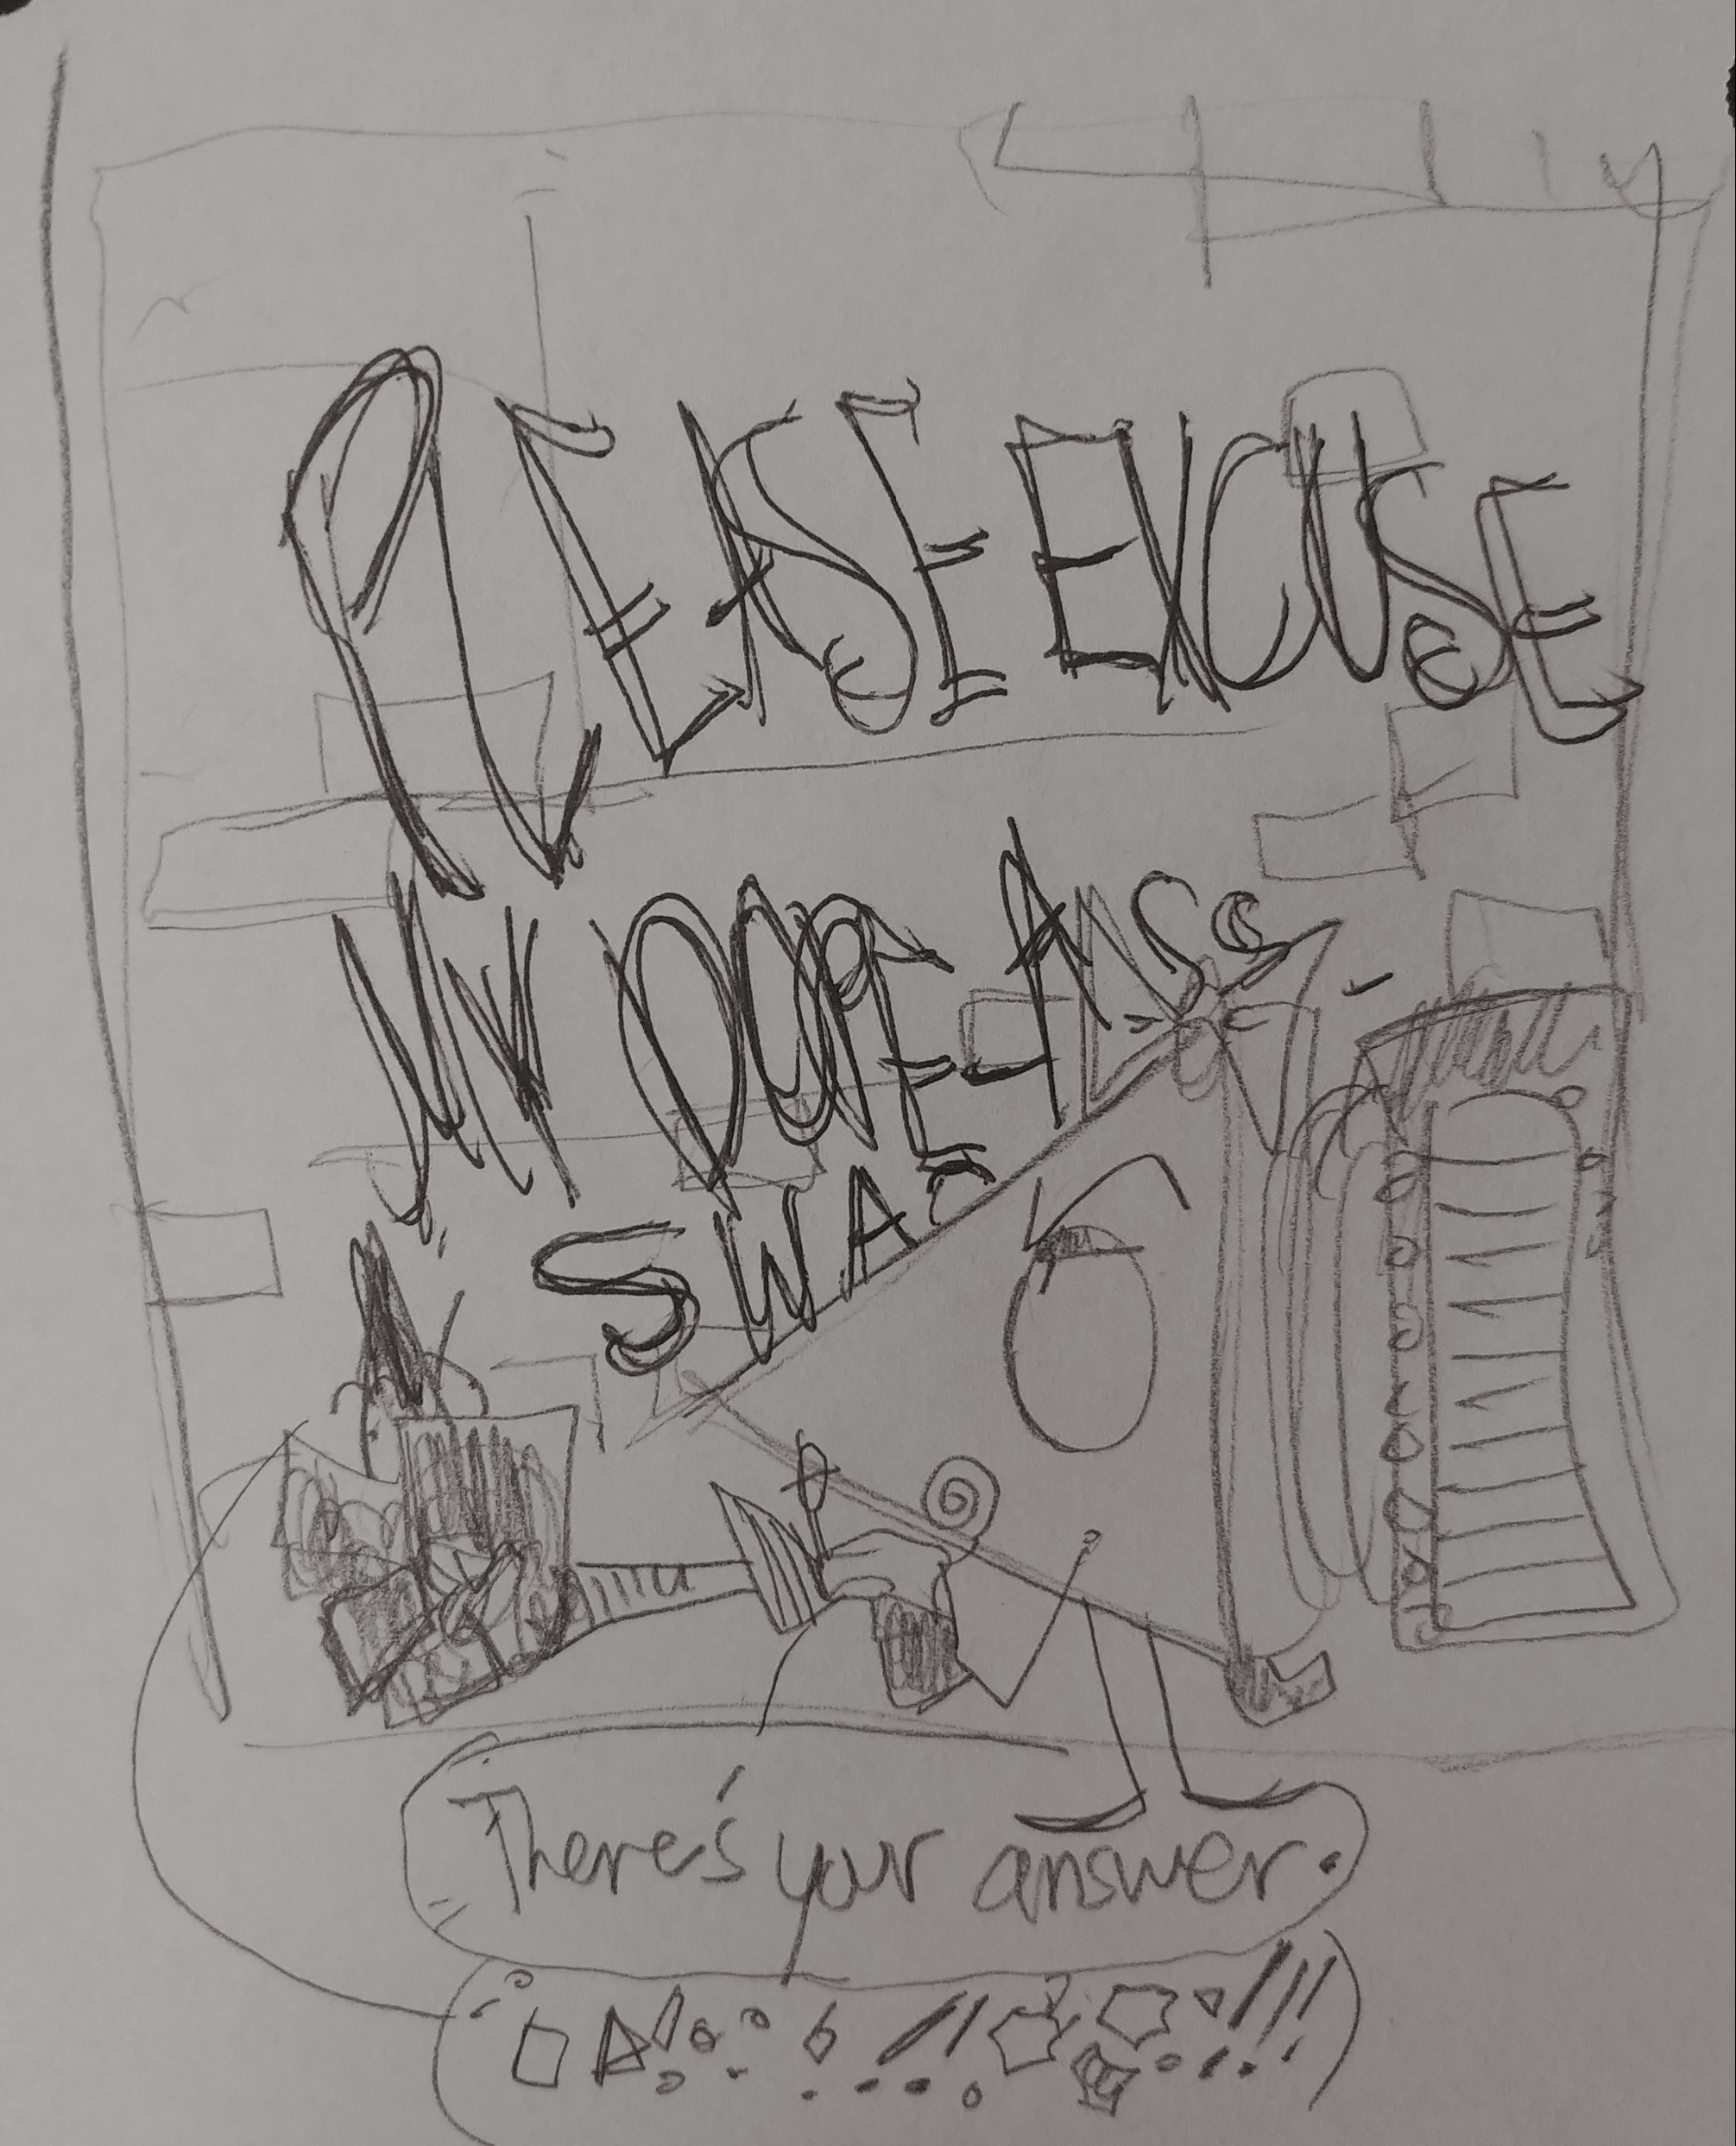 PLEASE EXCUSE
MY DOPE-ASS
SWAG
There's your answer.